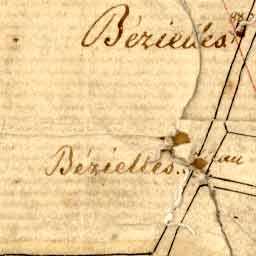 Bézielles
Bézielles.
au